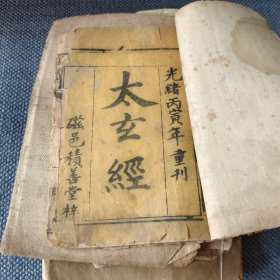 光緒丙寅年重刊
太玄經
磁邑積善堂梓